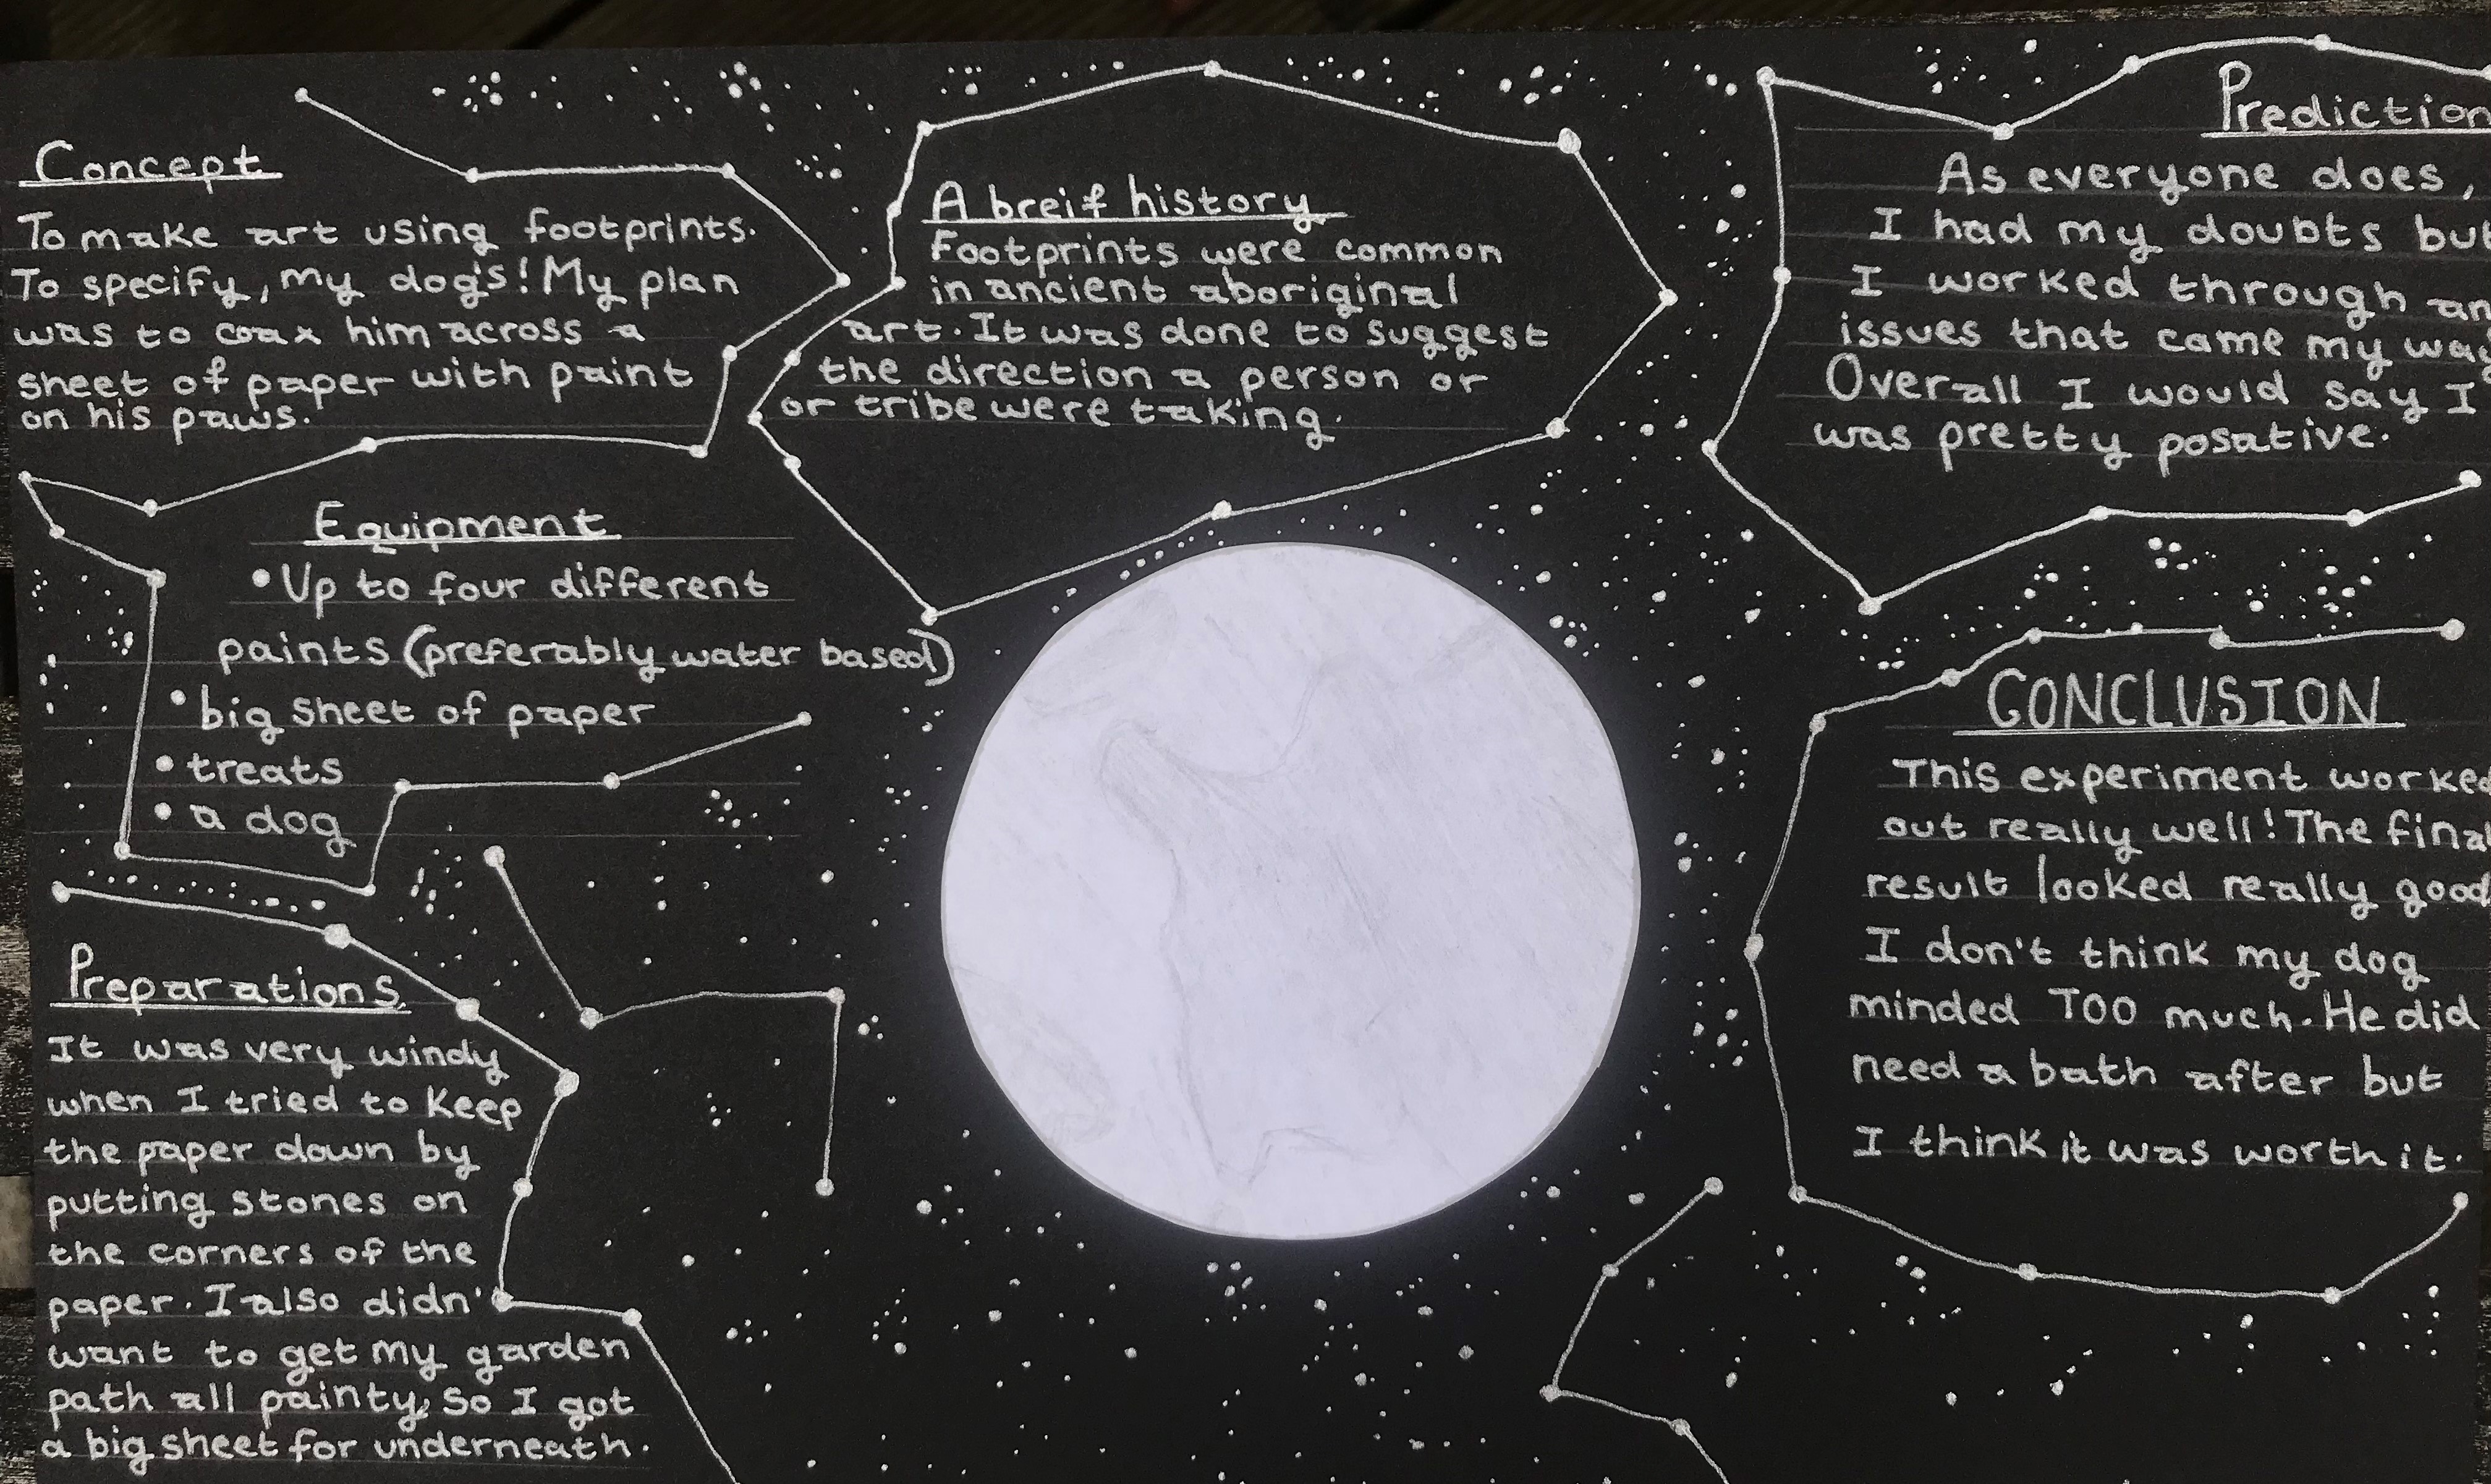 Concept
To make art using footprints.
To specify, my dog's! My plan
was to coax him across a
sheet of paper with paint
on his paws.
A breif history
Footprints were common
in ancient aboriginal
art. It was done to suggest
the direction a person or
or tribe were taking.
Prediction
As everyone does,
I had my doubts but
I worked through an
issues that came my way
Overall I would say I
was pretty posative.
Equipment
• Up to four different
paints (preferably water based)
• big sheet of paper
• treats
• a dog
Preparations
It was very windy
when I tried to keep
the paper down by
putting stones on
the corners of the
paper. I also didn'
want to get my garden
path all painty, so I got
a big sheet for underneath.
CONCLUSION
This experiment worked
out really well! The final
result looked really good
I don't think my dog
minded TOO much. He did
need a bath after but
I think it was worth it.